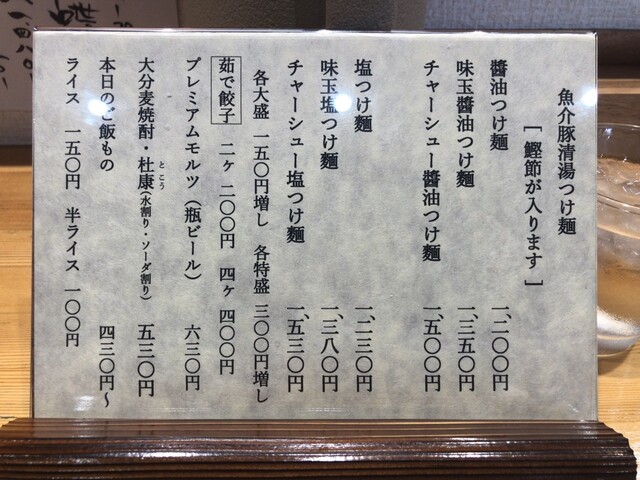 魚介豚清湯つけ麺
[ 鰹節が入ります ]
醬油つけ麺 一、二〇〇円
味玉醬油つけ麺 一、三五〇円
チャーシュー醬油つけ麺 一、五〇〇円
塩つけ麺 一、二三〇円
味玉塩つけ麺 一、三八〇円
チャーシュー塩つけ麺 一、五三〇円
各大盛 一五〇円増し 各特盛 三〇〇円増し
茹で餃子 二ヶ 二〇〇円 四ヶ 四〇〇円
プレミアムモルツ（瓶ビール） 六三〇円
大分麦焼酎・杜康（水割り・ソーダ割り） 五三〇円
とこう
本日のご飯もの 四三〇円～
ライス 一五〇円 半ライス 一〇〇円